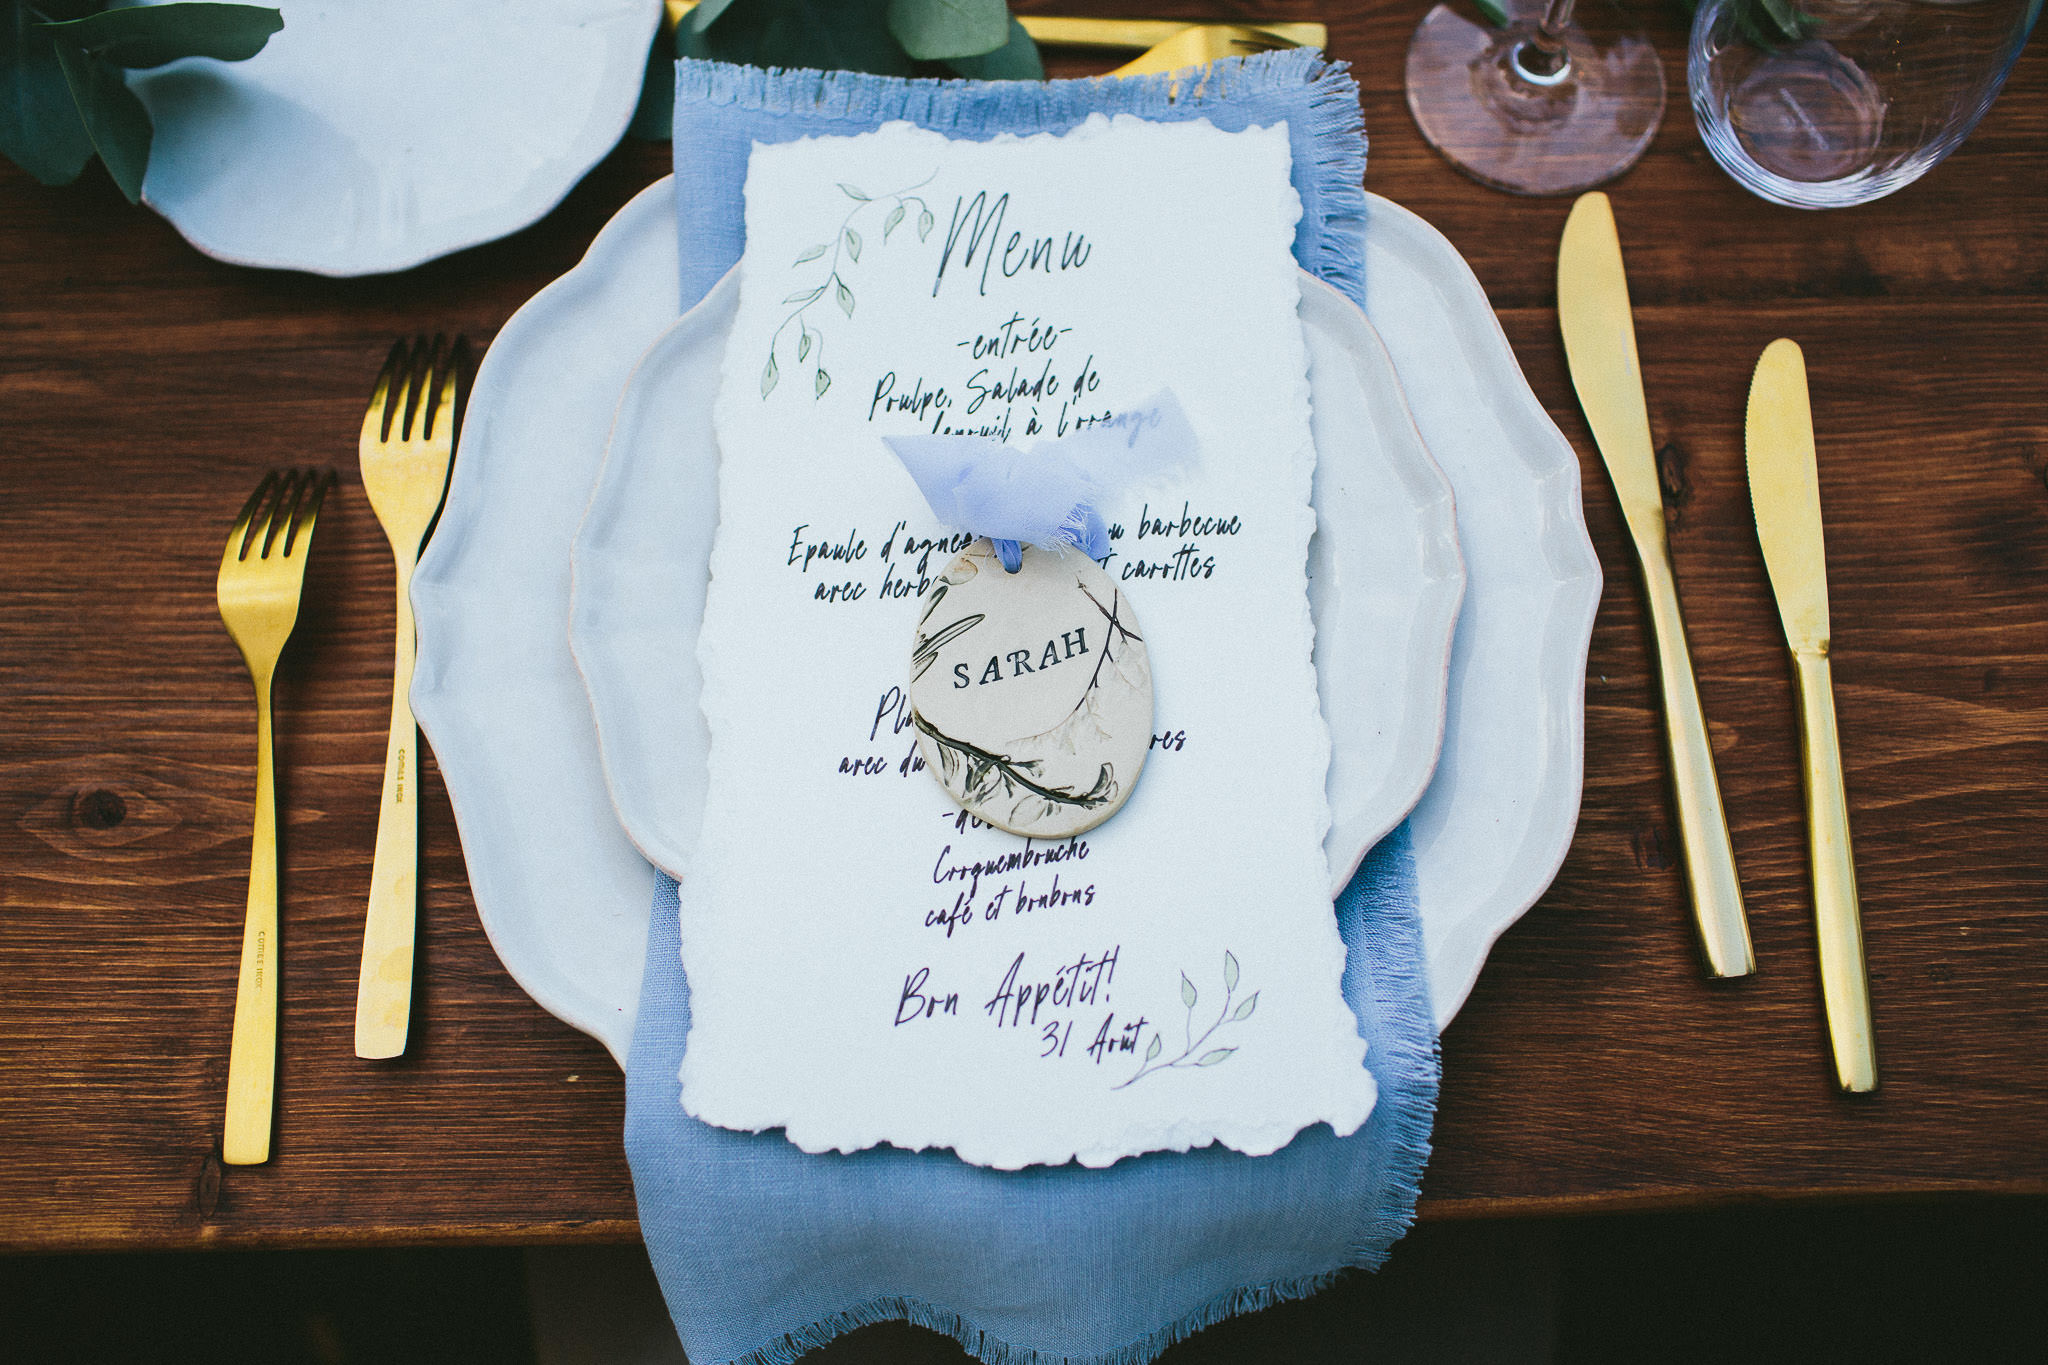 Menu
-entrée-
Poulpe, Salade de
fenouil à l'orange
Epaule d'agneau au barbecue
avec carottes
SARAH
avec du
Croquembouche
café et bonbons
Bon Appétit!
31 Août
COMAS INOX
COMAS INOX